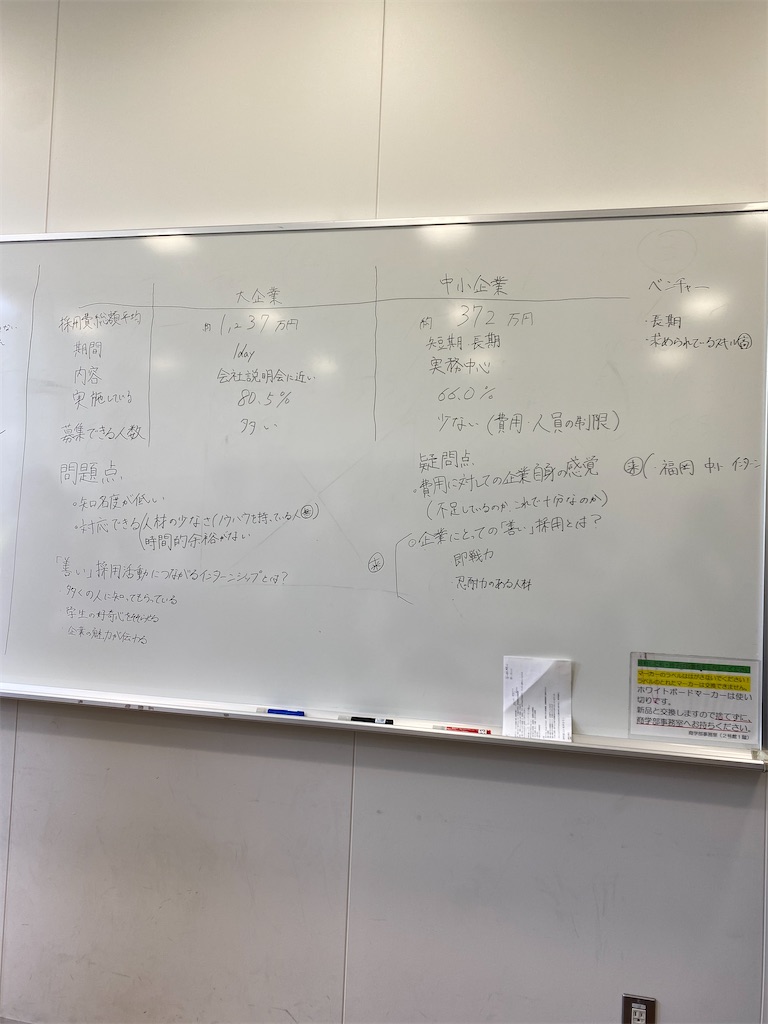 大企業 中小企業 ベンチャー
採用費総額平均 約1,237万円 約372万円 ・長期
期間 1day 短期 長期 ・求められているスキル高
内容 会社説明会に近い 実務中心
実施している 80.5% 66.0%
募集できる人数 多い 少ない(費用・人員の制限)
問題点
・知名度が低い
・対応できる人材の少なさ(ノウハウを持っている人
時間的余裕がない
「善い」採用活動につながるインターンシップとは?
・多くの人に知ってもらっている
学生の好奇心を
企業の魅力が伝わる
疑問点
・費用に対しての企業自身の感覚
(不足しているのか、これで十分なのか)
・福岡 中小 インターン
○企業にとっての「善い」採用とは?
即戦力
・忍耐力のある人材
マーカーのラベルは剥がさないでください!
ラベルのとれたマーカーは交換できません。
ホワイトボードマーカーは使い
切りです。
新品と交換しますので捨てずに、
商学部事務室へお持ちください。
商学部事務室(2号館1階)